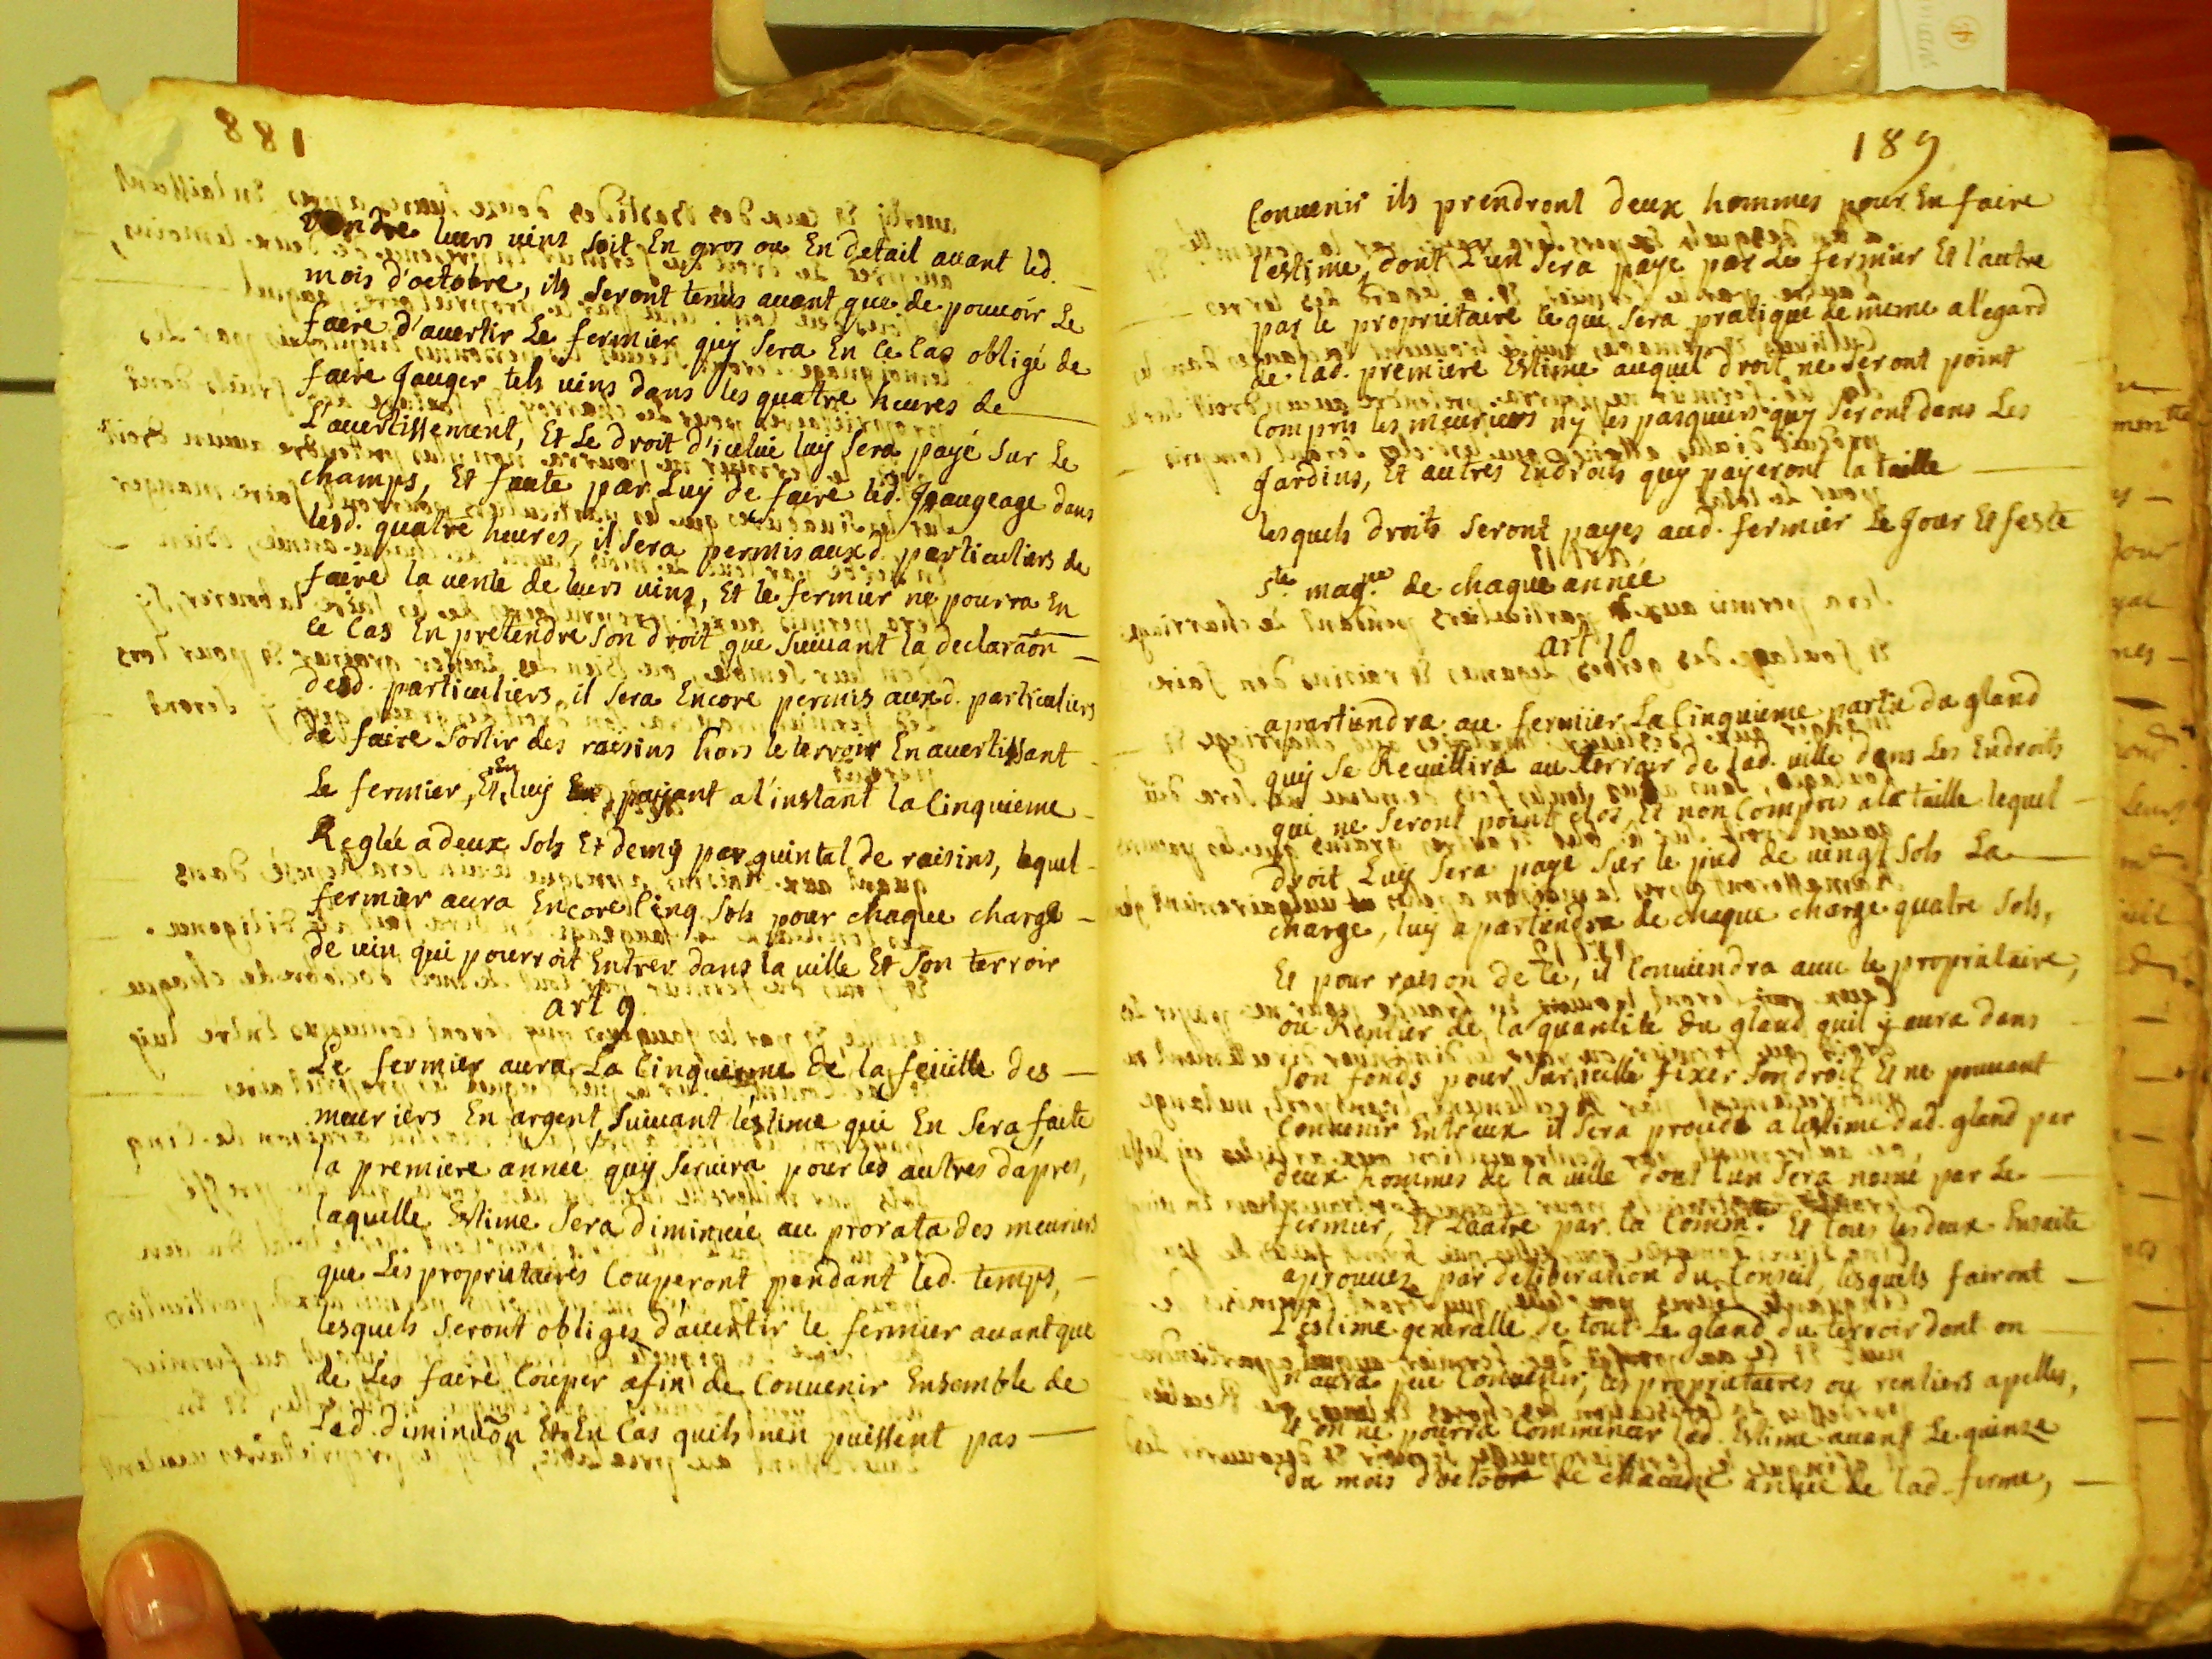 188
vendre leurs vins soit En gros ou En detail avant led.
mois d'octobre, ils seront tenus avant que de pouvoir Le
faire d'avertir Le fermier quy sera En ce Cas obligé de
faire Jauger tels vins dans les quatre heures de
L'avertissement, Et Le droit d'icelui luy sera payé sur Le
champs, Et faute par Luy de faire led. Jaugeage dans
lesd. quatre heures, il sera permis auxd. particuliers de
faire la vente de leurs vins, Et le fermier ne pourra En
ce Cas En pretendre son droit que suivant la declaraõn
desd. particuliers, il sera Encore permis auxd. particuliers
de faire sortir des raisins hors le terroir En avertissant
Le fermier, Et En luy payant a l'instant la Cinquieme
Reglée a deux sols Et demy par quintal de raisins, lequel
fermier aura Encore Cinq sols pour chaque charge
de vin qui pourroit Entrer dans la ville Et son terroir
art 9
Le fermier aura La Cinquieme de la feüille des
meuriers En argent, suivant l'estime qui En sera faite
la premiere année quy servira pour les autres dapres,
laquelle Estime sera diminuée au prorata des meuriers
que Les proprietaires Couperont pendant led. temps,
lesquels seront obliges d'avertir le fermier avant que
de Les faire Couper afin de Convenir Ensemble de
Lad. diminuõn Et En Cas quils nen puissent pas
189
Convenir ils prendront deux hommes pour En faire
l'estime, dont L'un sera paye par Le fermier Et l'autre
par le proprietaire ce qui sera pratiqué de meme a l'egard
de lad. premiere Estime auquel droit ne seront point
Compris les meuriers ny les pasquiers quy seront dans Les
Jardins, Et autres Endroits quy payeront la taille
lesquels droits seront payes aud. fermier Le Jour Et feste
Ste. magne. de chaque année
art 10
apartiendra au fermier La Cinquieme partie du gland
quy se Recuillira au terroir de lad. ville dans Les Endroits
qui ne seront point clos, Et non Compris a la taille lequel
droit Luy sera payé sur le pied de vingt sols La
charge, luy apartiendra de chaque charge quatre sols,
Et pour raison de ce, il Conviendra avec le proprietaire,
ou Rentier de la quantite du gland quil y aura dans
son fonds pour sur icelle fixer son droit Et ne pouvant
Convenir Entreux il sera procedé a lestime dud. gland par
deux hommes de la ville dont l'un sera nomé par Le
fermier, Et L'autre par la Commté. Et tous les deux Ensuite
aprouvez par deliberation du Conseil, lesquels fairont
L'estime generalle de tout Le gland du terroir dont on
n'aura peu Convenir, les proprietaires ou rentiers apelles,
Et on ne pourra Commencer lad. Estime avant Le quinze
du mois d'octobre de chacune année de lad. ferme,